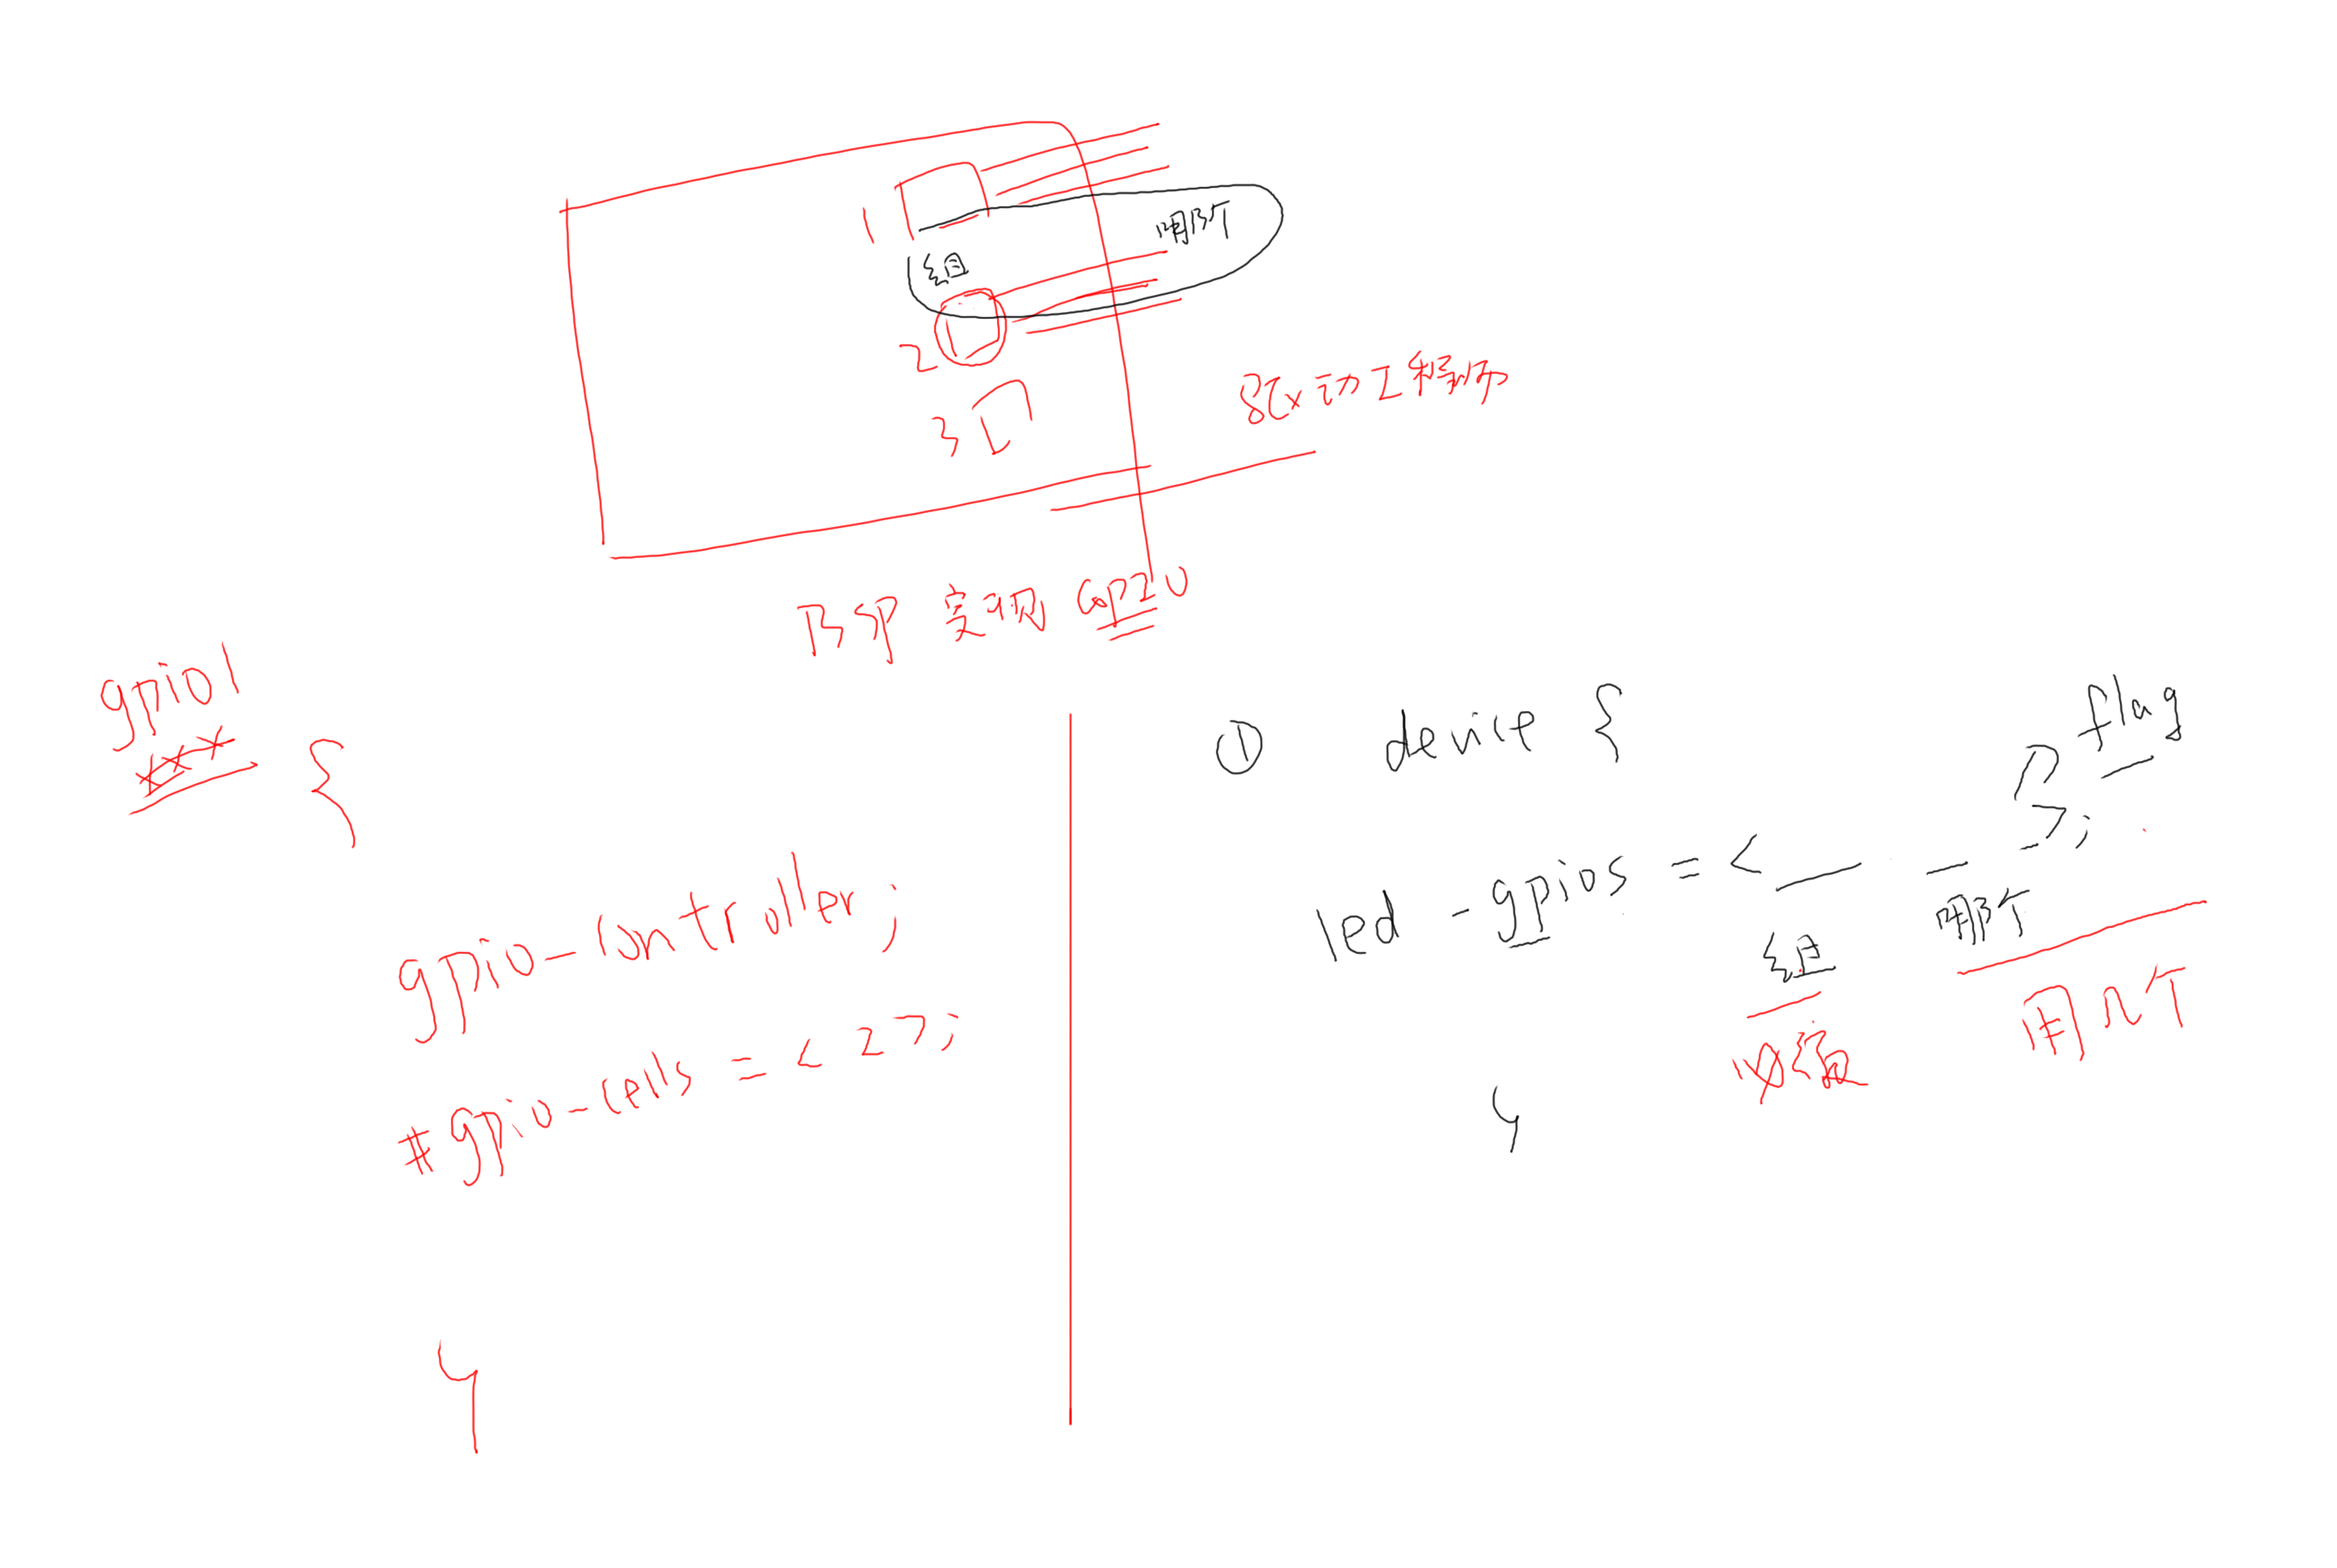 1
哪个
组
2
3
驱动工程师
BSP 实现 GPIO
gpio1
{
gpio-controller;
#gpio-cells = <2>;
}
① device {
flag
led-gpios = < >;
组 哪个
必须 用几个
}